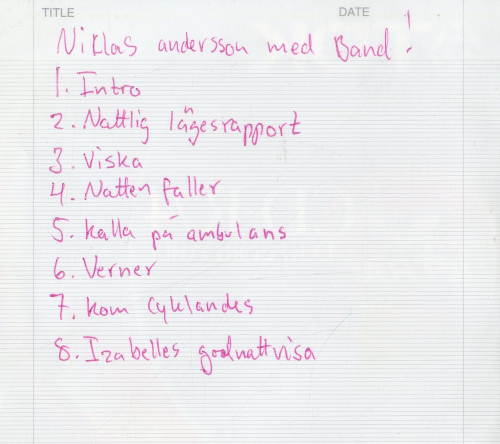 TITLE
DATE
Niklas andersson med Band!
1. Intro
2. Nattlig lägesrapport
3. Viska
4. Natten faller
5. Kalla på ambulans
6. Verner
7. Kom cyklandes
8. Izabelles godnattvisa